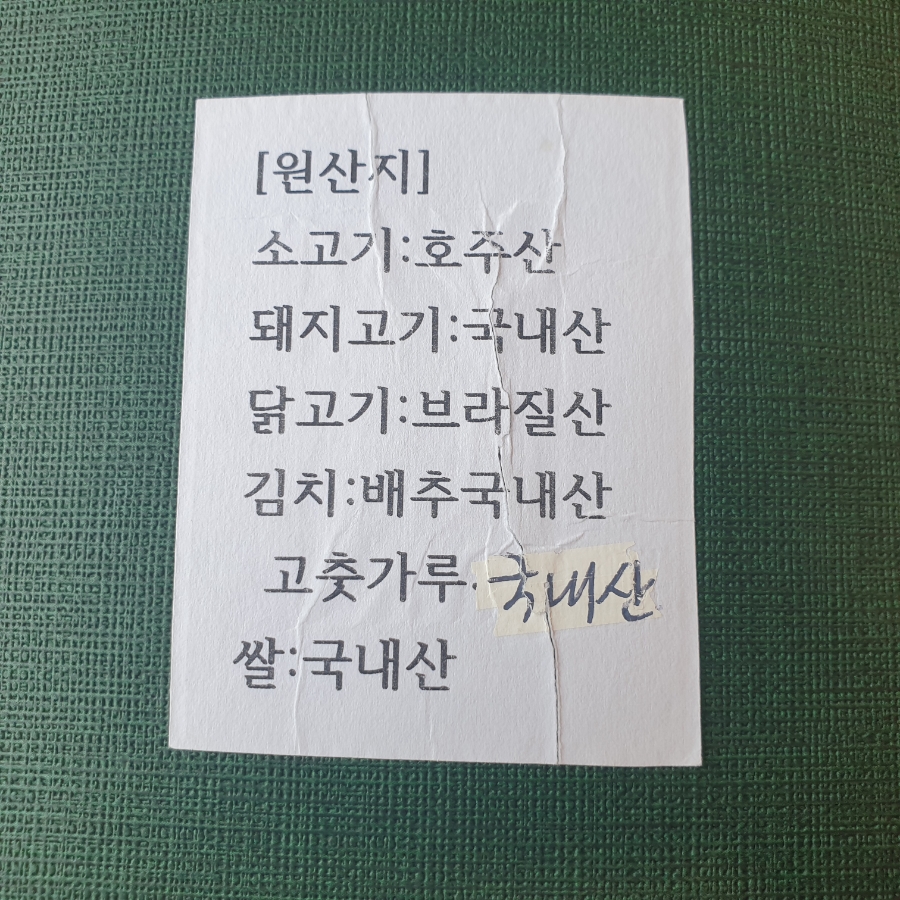 [원산지]
소고기:호주산
돼지고기:국내산
닭고기:브라질산
김치:배추국내산
고춧가루.국내산
쌀:국내산